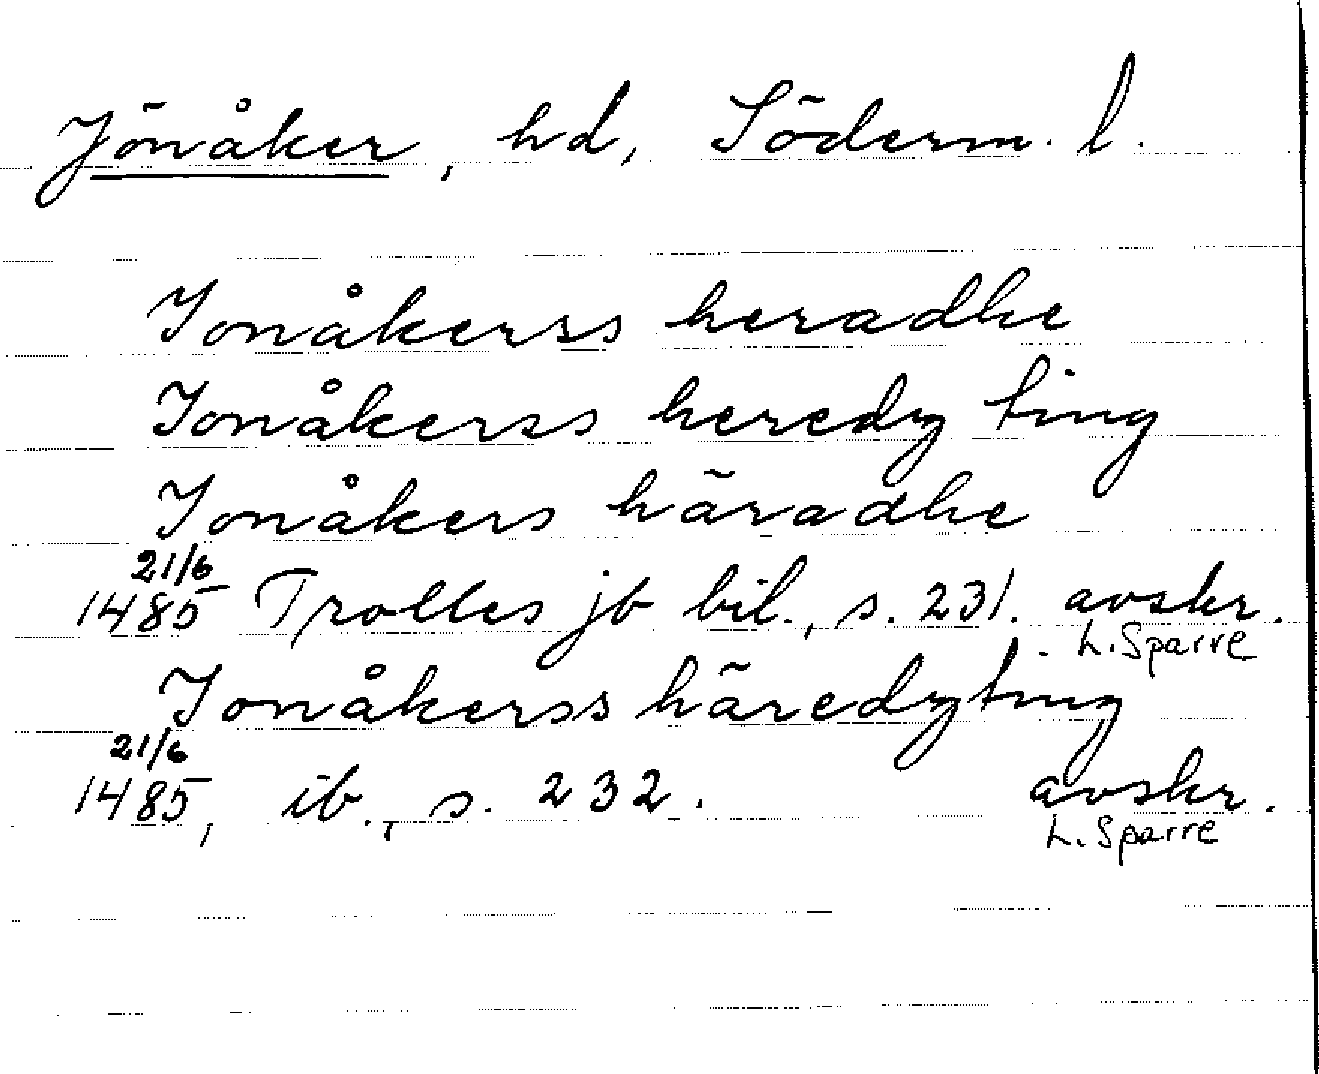 Jönåker, hd, Söderm. l.
Jonåkerss heradhe
Jonåkerss heredz ting
Jonåkers häradhe
21/6
1485 Trolles jb bil., s. 231. avskr.
L. Sparre
Jonåkerss häredzting
21/6
1485, ib., s. 232. avskr.
L. Sparre